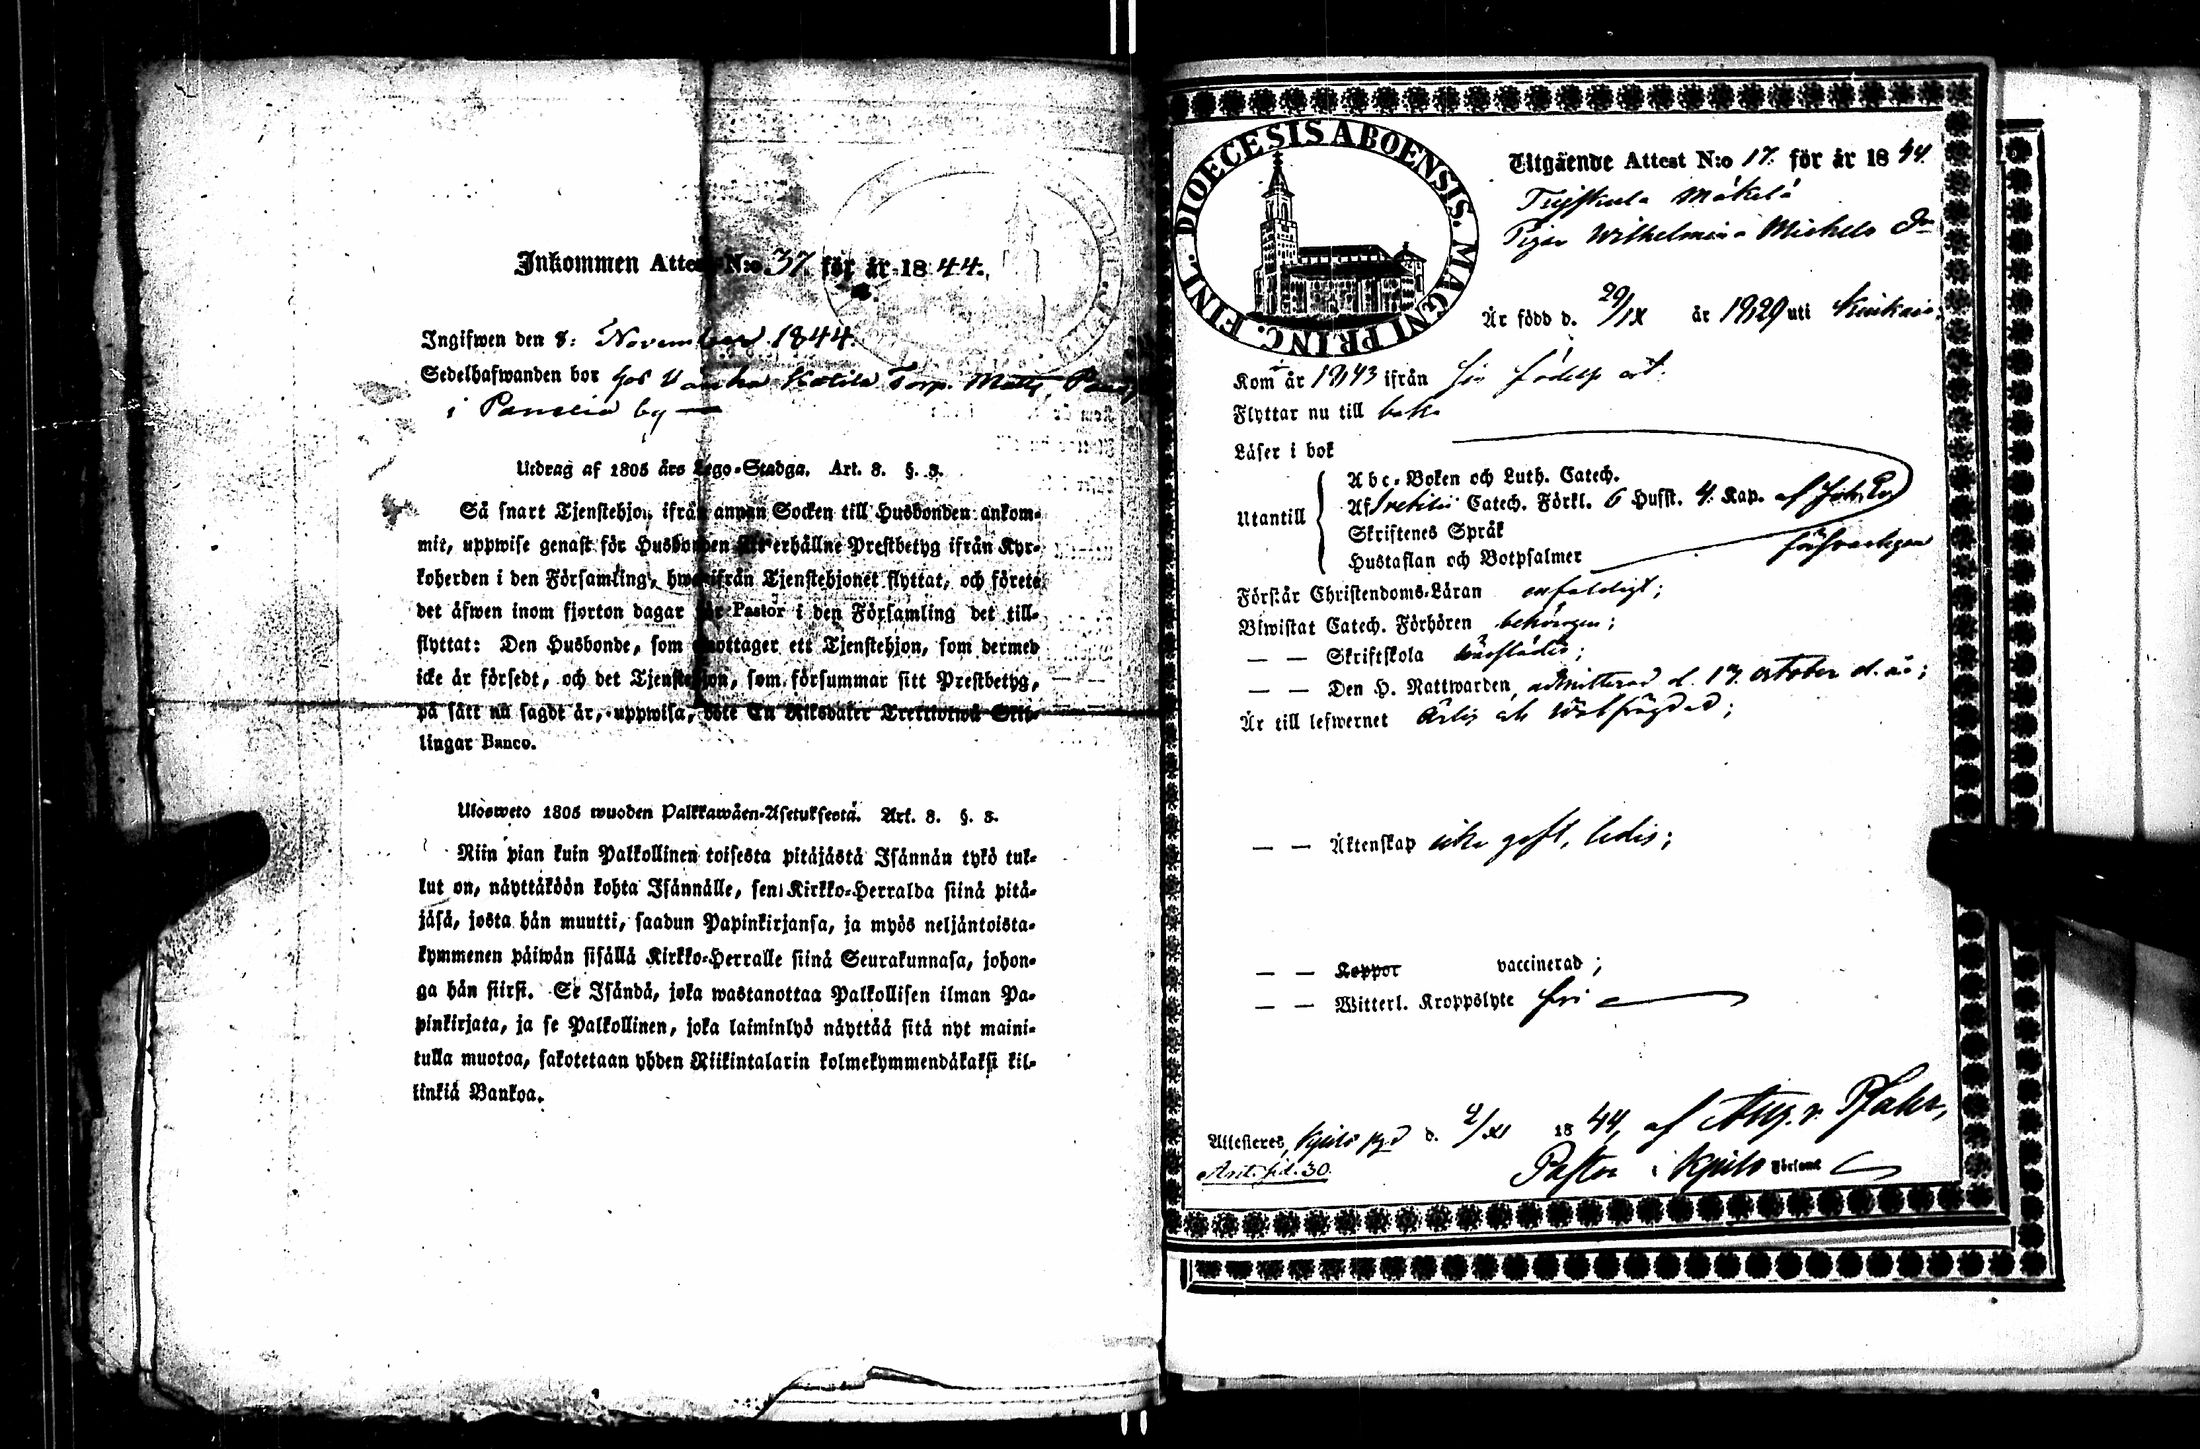 Inkommen Attest N:o 37. för år 1844.
Ingifwen den 8: November 1844.
Sedelhafwanden bor hos Torp. Matts
i Panelia by
Utdrag af 1805 års Lego-Stadga. Art. 8. §. 3.
Så snart Tjenstehjon ifrån annan Socken till Husbonden ankom-
mit, uppwise genast för Husbonden sitt erhållne Prestbetyg ifrån Kyr-
koherden i den Församling, hwarifrån Tjenstehjonet flyttat, och förete
det äfwen inom fjorton dagar för Pastor i den Församling det till-
flyttat: Den Husbonde, som emottager ett Tjenstehjon, som dermed
icke är försedt, och det Tjenstehjon, som försummar sitt Prestbetyg,
på sätt nu sagdt är, uppwisa, böte En Riksdaler Trettiotwå Skil-
lingar Banco.
Ulosweto 1805 wuoden Palkkawäen-Asetuksesta. Art. 8. §. 3.
Niin pian kuin Palkollinen toisesta pitäjästä Isännän tykö tul-
lut on, näyttäköön kohta Isännälle, sen Kirkko-Herralda siinä pitä-
jäsä, josta hän muutti, saadun Papinkirjansa, ja myös neljäntoista-
kymmenen päiwän sisällä Kirkko-Herralle siinä Seurakunnasa, johon-
ga hän siirsi. Se Isändä, joka wastanottaa Palkollisen ilman Pa-
pinkirjata, ja se Palkollinen, joka laiminlyö näyttää sitä nyt maini-
tulla muotoa, sakotetaan yhden Riikintalarin kolmekymmendäkaksi kil-
linkiä Bankoa.
DIOECESIS ABOENSIS. MAGNI PRINC. FINL.
Utgående Attest N:o 17. för år 1844.
Mäkelä
Pigan Wilhelmina Michels Dr
Är född d. 29/IX år 1829 uti Kiukais.
Kom år 1843 ifrån sin födelse ort.
Flyttar nu till baka
Läser i bok
Utantill
Abc-Boken och Luth. Catech.
Af Svebilii Catech. Förkl. 6 Husst. 4. Kap. af
Skriftenes Språk
Hustaflan och Botpsalmer försvarligen
Förstår Christendoms-Läran enfaldigt;
Biwistat Catech. Förhören behörigen;
— — Skriftskola
— — Den H. Nattwarden, admitterad d. 17. october d. å.;
Är till lefwernet Ärlig och Wälfrägdad;
— — Äktenskap icke gift, ledig;
— — Koppor vaccinerad;
— — Witterl. Kroppslyte fri
Attesteres, Kjulo pgd d. 4/XI 1844, af Aug. v. Pfaler,
Pastor i Kjulo Församl